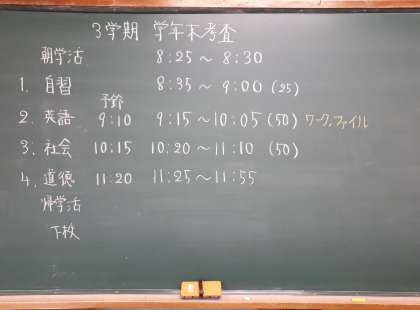 3学期 学年末考査
朝学活 8:25～8:30
1. 自習 8:35～9:00 (25)
予鈴
2. 英語 9:10 9:15～10:05 (50) ワーク,ファイル
3. 社会 10:15 10:20～11:10 (50)
4. 道徳 11:20 11:25～11:55
帰学活
下校